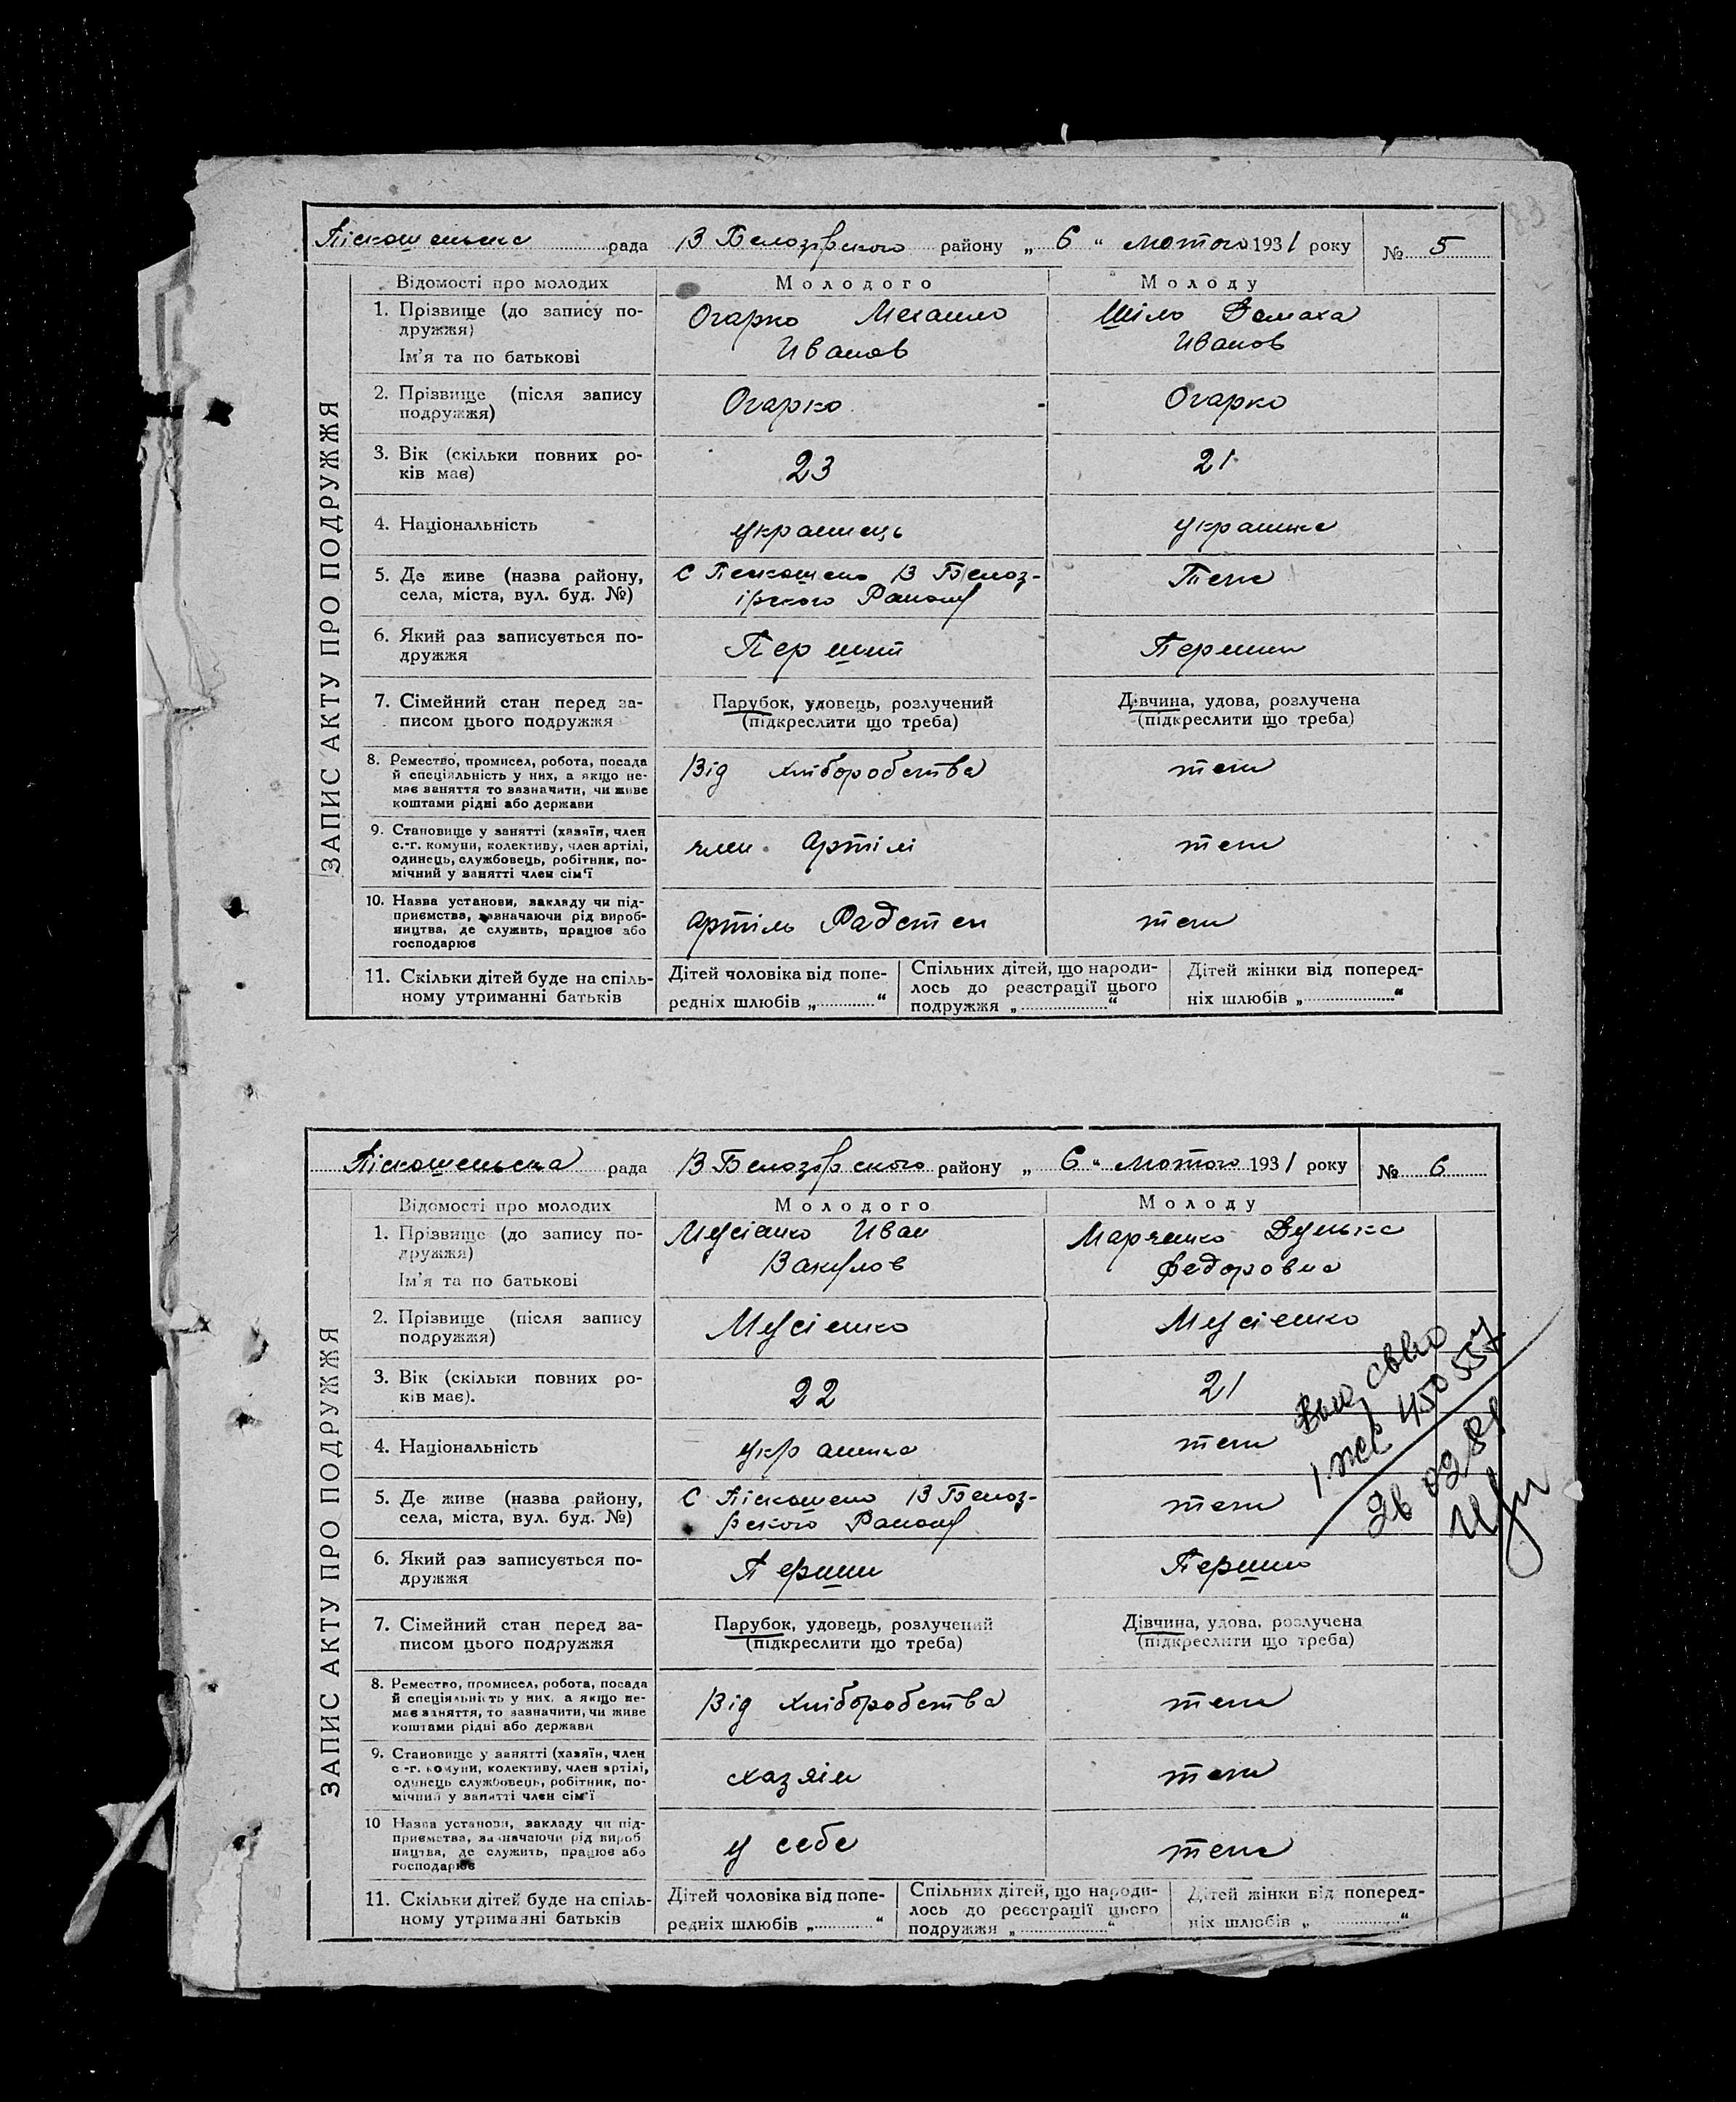 83
Піскошенська рада В Белозірского району „ 6 “ лютого 1931 року № 5
ЗАПИС АКТУ ПРО ПОДРУЖЖЯ
Відомості про молодих Молодого Молоду
1. Прізвище (до запису по-
дружжя)
Ім'я та по батькові
Огарко Механло
Иванов
Шіло Домаха
Иванов
2. Прізвище (після запису
подружжя)
Огарко
Огарко
3. Вік (скільки повних ро-
ків має)
23
21
4. Національність
украинець
украинка
5. Де живе (назва району,
села, міста, вул. буд. №)
С Пескошено В Белоз-
ірского Району
Теж
6. Який раз записується по-
дружжя
Перший
Перши
7. Сімейний стан перед за-
писом цього подружжя
Парубок, удовець, розлучений
(підкреслити що треба)
Дівчина, удова, розлучена
(підкреслити що треба)
8. Ремество, промисел, робота, посада
й спеціяльність у них, а якщо не-
має заняття то зазначити, чи живе
коштами рідні або держави
Від хліборобства
теж
9. Становище у занятті (хазяїн, член
с.-г. комуни, колективу, член артілі,
одинець, службовець, робітник, по-
мічний у занятті член сім'ї
член артілі
теж
10. Назва установи, закладу чи під-
приємства, зазначаючи рід вироб-
ництва, де служить, працює або
господарює
артіль Радстеп
теж
11. Скільки дітей буде на спіль-
ному утриманні батьків
Дітей чоловіка від попе-
редніх шлюбів „ “
Спільних дітей, що народи-
лось до реєстрації цього
подружжя „ “
Дітей жінки від поперед-
ніх шлюбів „ “
Піскошенська рада В Белозірского району „ 6 “ лютого 1931 року № 6
ЗАПИС АКТУ ПРО ПОДРУЖЖЯ
Відомості про молодих Молодого Молоду
1. Прізвище (до запису по-
дружжя)
Ім'я та по батькові
Мусіенко Иван
Вакулов
Марченко Дунька
Федоровна
2. Прізвище (після запису
подружжя)
Мусіенко
Мусіенко
3. Вік (скільки повних ро-
ків має).
22
21
4. Національність
украинка
теж
5. Де живе (назва району,
села, міста, вул. буд. №)
С Піскошено В Белоз-
рского Району
теж
6. Який раз записується по-
дружжя
Перши
Перши
7. Сімейний стан перед за-
писом цього подружжя
Парубок, удовець, розлучений
(підкреслити що треба)
Дівчина, удова, розлучена
(підкреслити що треба)
8. Ремество, промисел, робота, посада
й спеціяльність у них, а якщо не-
має заняття, то зазначити, чи живе
коштами рідні або держави
Від хліборобства
теж
9. Становище у занятті (хазяїн, член
с.-г. комуни, колективу, член артілі,
одинець службовець, робітник, по-
мічний у занятті член сім'ї
схазяін
теж
10 Назва установи, закладу чи під-
приємства, зазначаючи рід вироб
ництва, де служить, працює або
господарює
у себе
теж
11. Скільки дітей буде на спіль-
ному утриманні батьків
Дітей чоловіка від попе-
редніх шлюбів „ “
Спільних дітей, що народи-
лось до реєстрації цього
подружжя „ “
Дітей жінки від поперед-
ніх шлюбів „ “